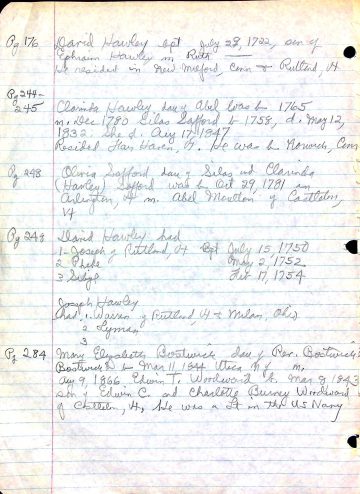 Pg 176 David Hawley bpt July 28, 1722, son of
Ephraim Hawley m Ruth
he resided in New Milford, Conn & Rutland, Vt
Pg 244-
245 Clarinda Hawley dau of Abel was b 1765
m. Dec 1780 Silas Safford b 1758, d. May 12,
1832 She d. Aug 17 1847
Resided Fair Haven, Vt. He was b Norwich, Conn
Pg 248 Olivia Safford dau of Silas and Clarinda
(Hawley) Safford was b Oct 29, 1781 in
Arlington, Vt m Abel Moulton of Castleton,
Vt
Pg 248 David Hawley had
1 - Joseph of Rutland, Vt bpt July 15, 1750
2 Phebe May 2, 1752
3 Feb 17, 1754
Joseph Hawley
had 1. Warren of Rutland, Vt & Milan, Ohio
2 Lyman
3
Pg 284 Mary Elizabeth Bostwick dau of Rev. Bostwick
Bostwick b Mar 11, 1844 Utica N.Y. m.
Aug 9, 1866 Edwin T. Woodward b. Mar 8, 1843
son of Edwin C. and Charlotte Burney Woodward
of Castleton, Vt, He was a Lt in the US Navy